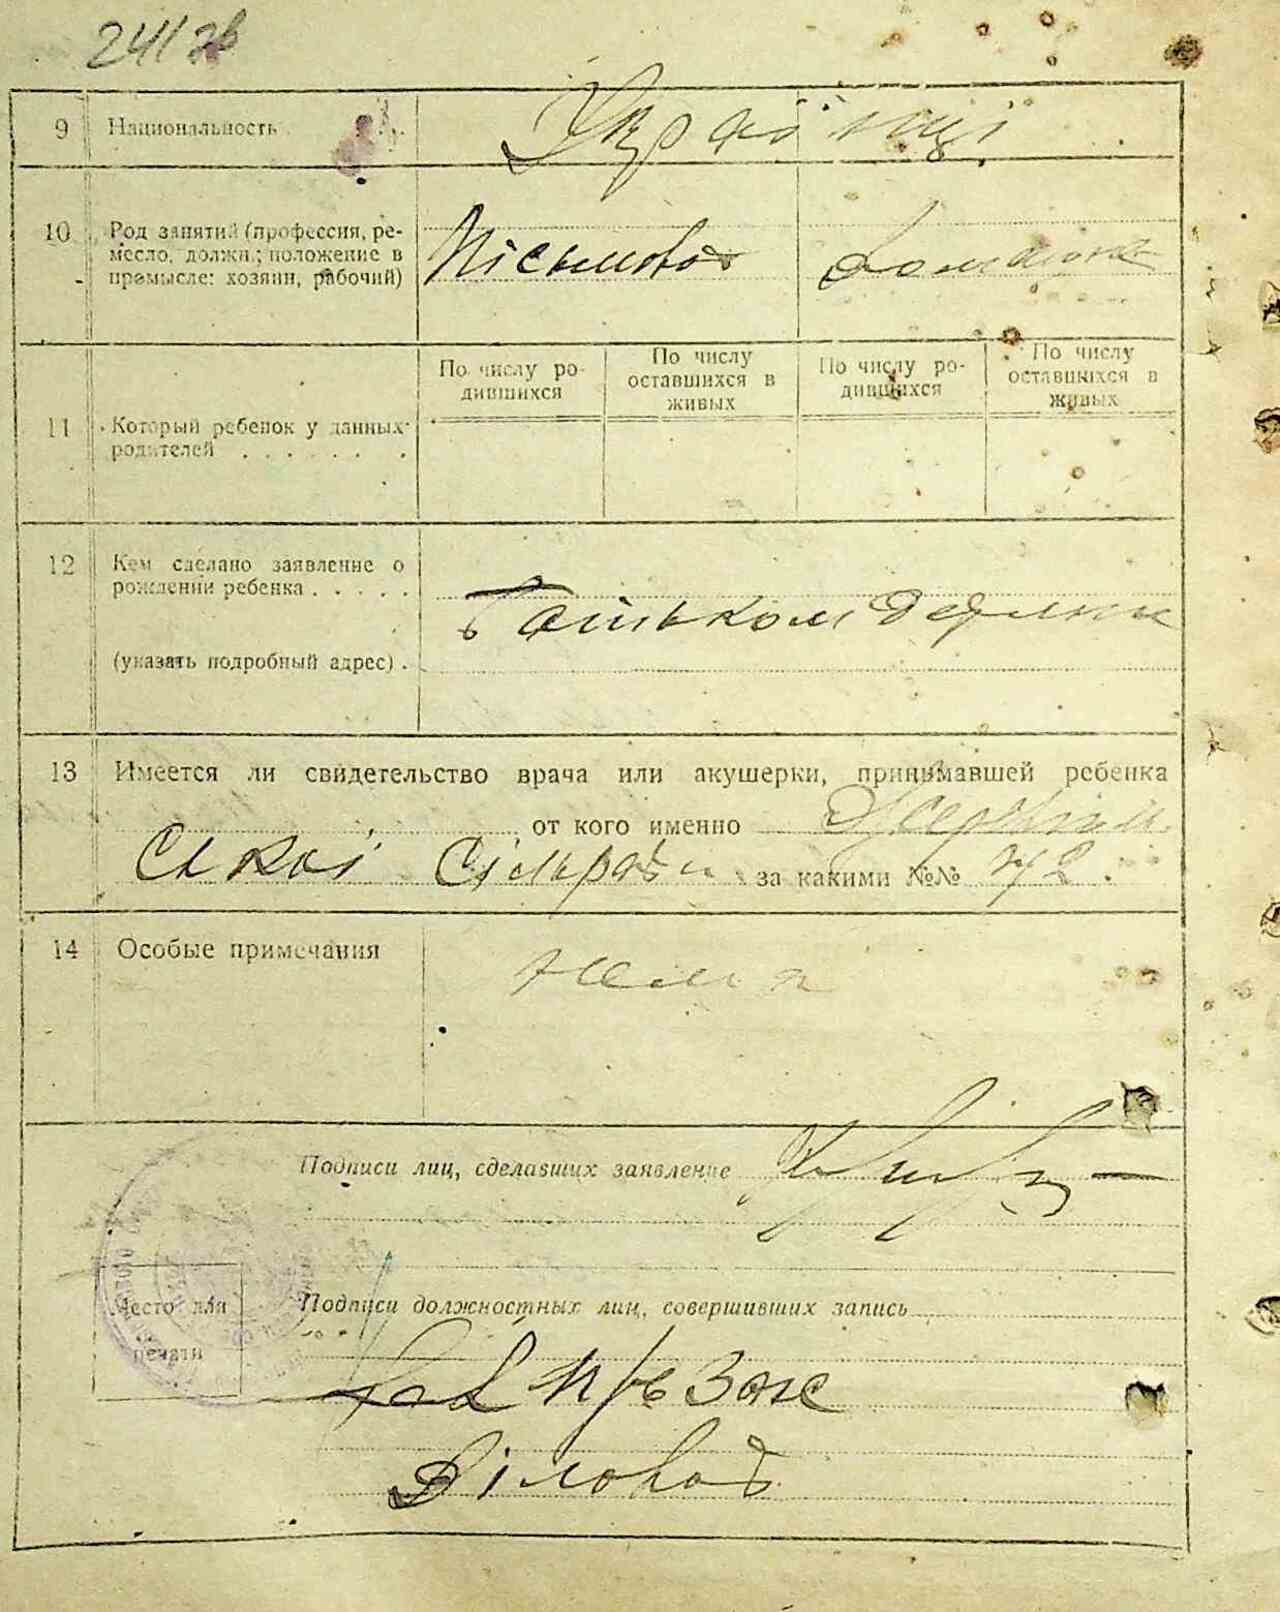 241 зв
9 Национальность Українці
10 Род занятий (профессия, ре-
месло, должн.; положение в
промысле: хозяин, рабочий)
Письмовод
Домашня
По числу ро-
дившихся
По числу
оставшихся в
живых
По числу ро-
дившихся
По числу
оставшихся в
живых
11 Который ребенок у данных
родителей . . . . . .
12 Кем сделано заявление о
рождении ребенка . . . . .
Батьком
(указать подробный адрес) .
13 Имеется ли свидетельство врача или акушерки, принимавшей ребенка
от кого именно
Сільради за какими №№
14 Особые примечания
Нема
Подписи лиц, сделавших заявление
Место для
печати
Подписи должностных лиц, совершивших запись
Діловод